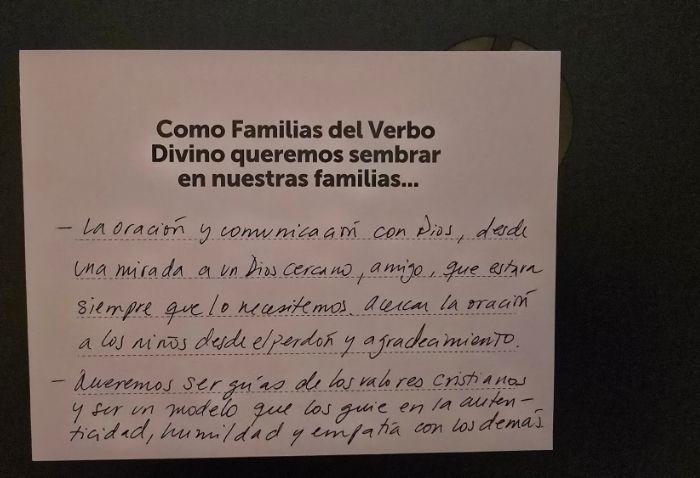 Como Familias del Verbo
Divino queremos sembrar
en nuestras familias...
- La oración y comunicación con Dios, desde
una mirada a un Dios cercano, amigo, que estara
siempre que lo necesitemos. Acercar la oración
a los niños desde el perdón y agradecimiento.
- Queremos ser guías de los valores cristianos
y ser un modelo que los guie en la auten-
ticidad, humildad y empatía con los demás